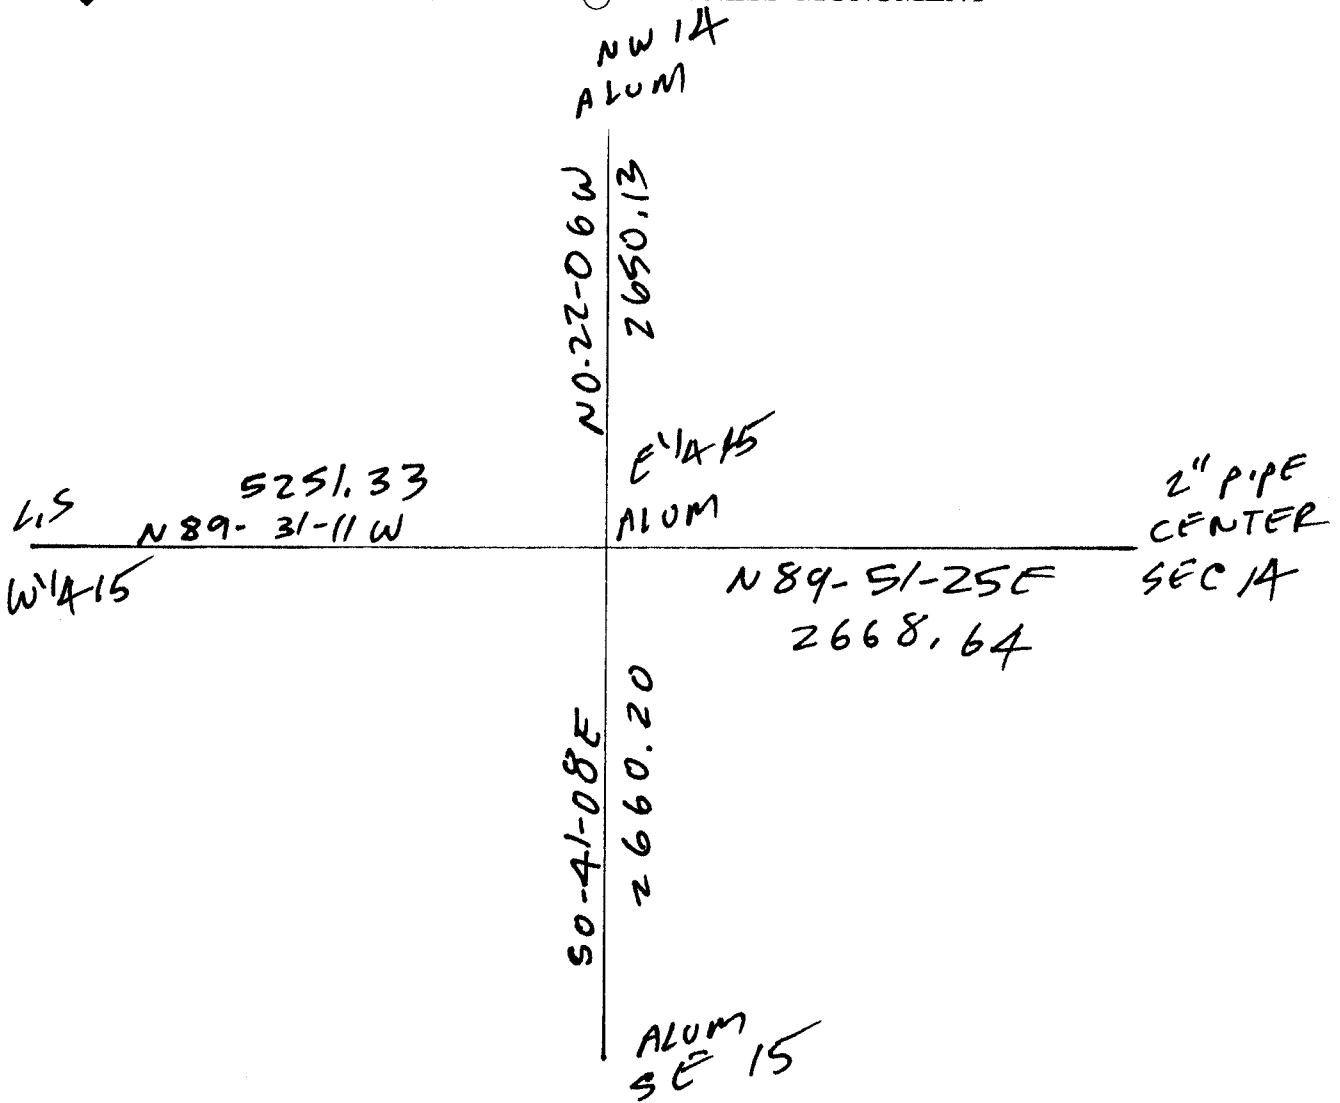 MONUMENT
NW 14
ALUM
N0-22-06W
2650.13
E 1/4 15
ALUM
5251.33
L.S
N89-31-11W
W 1/4 15
2" PIPE
CENTER
SEC 14
N89-51-25E
2668.64
S0-41-08E
2660.20
ALUM
SE 15